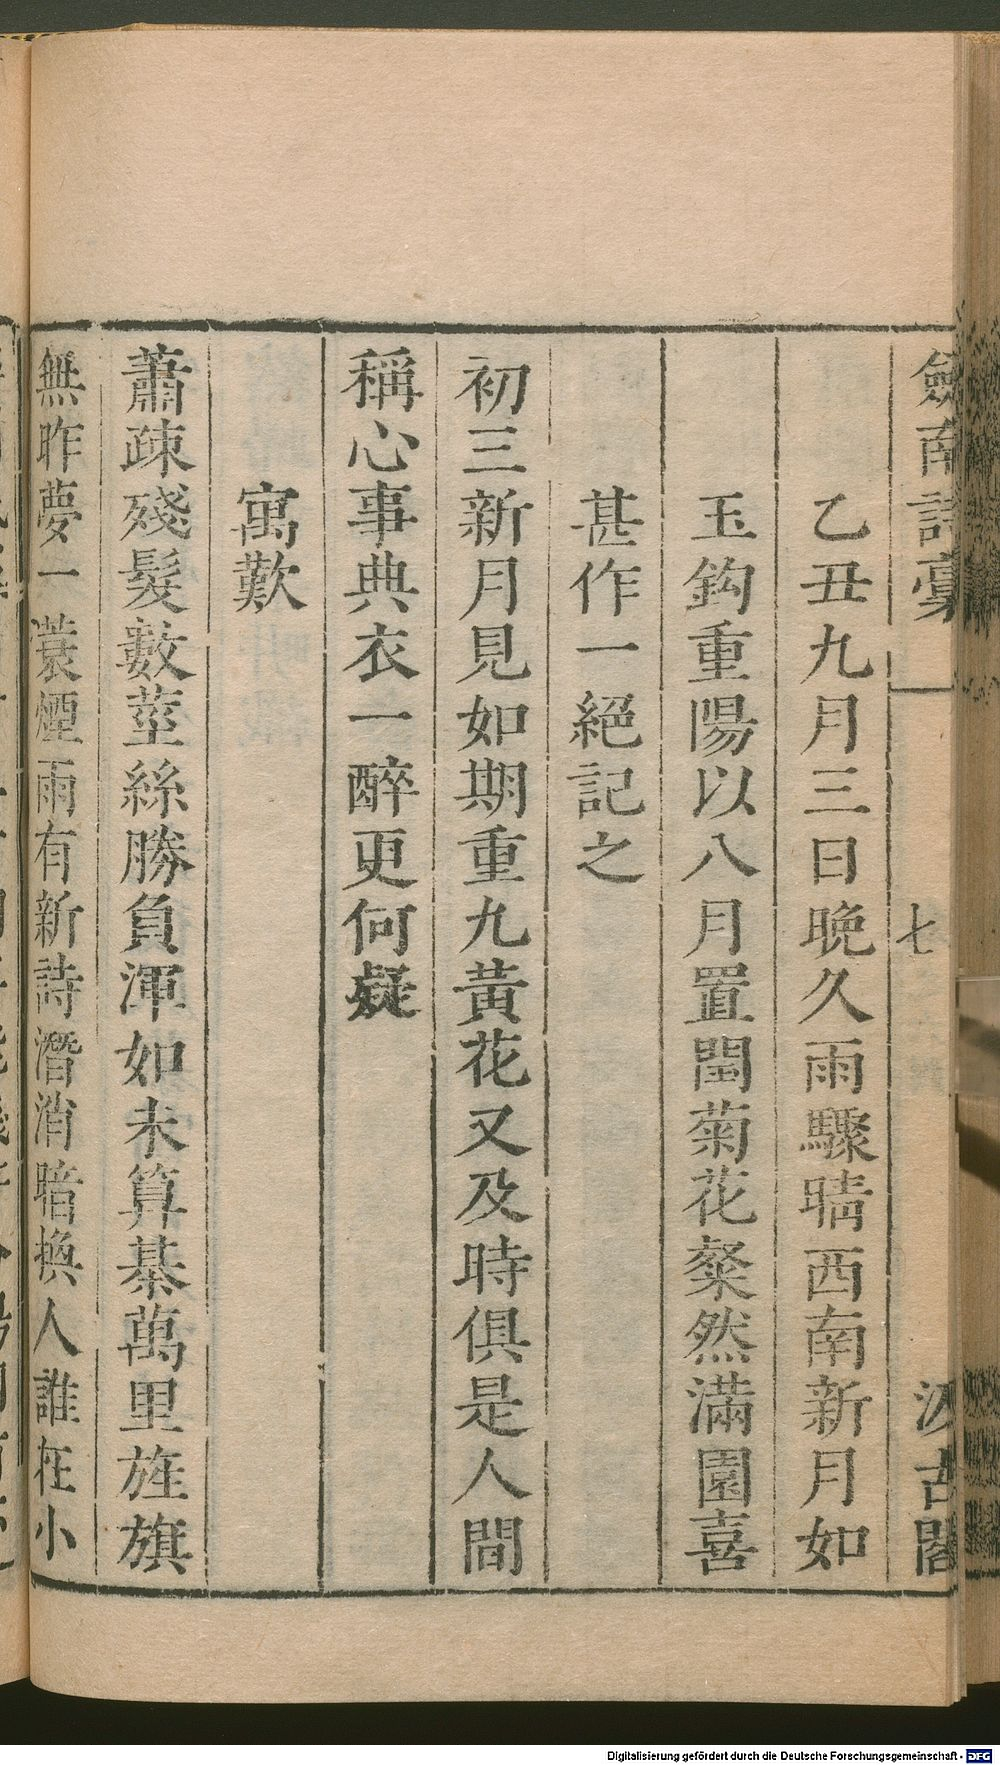 劒南詩稾
七
汲古閣
乙丑九月三日晚久雨驟晴西南新月如
玉鈎重陽以八月置閏菊花粲然滿園喜
甚作一絕記之
初三新月見如期重九黃花又及時俱是人間
稱心事典衣一醉更何疑
寓歎
蕭疎殘髮數莖絲勝負渾如未算棊萬里旌旗
無昨夢一蓑煙雨有新詩潛消暗換人誰在小
Digitalisierung gefördert durch die Deutsche Forschungsgemeinschaft - DFG